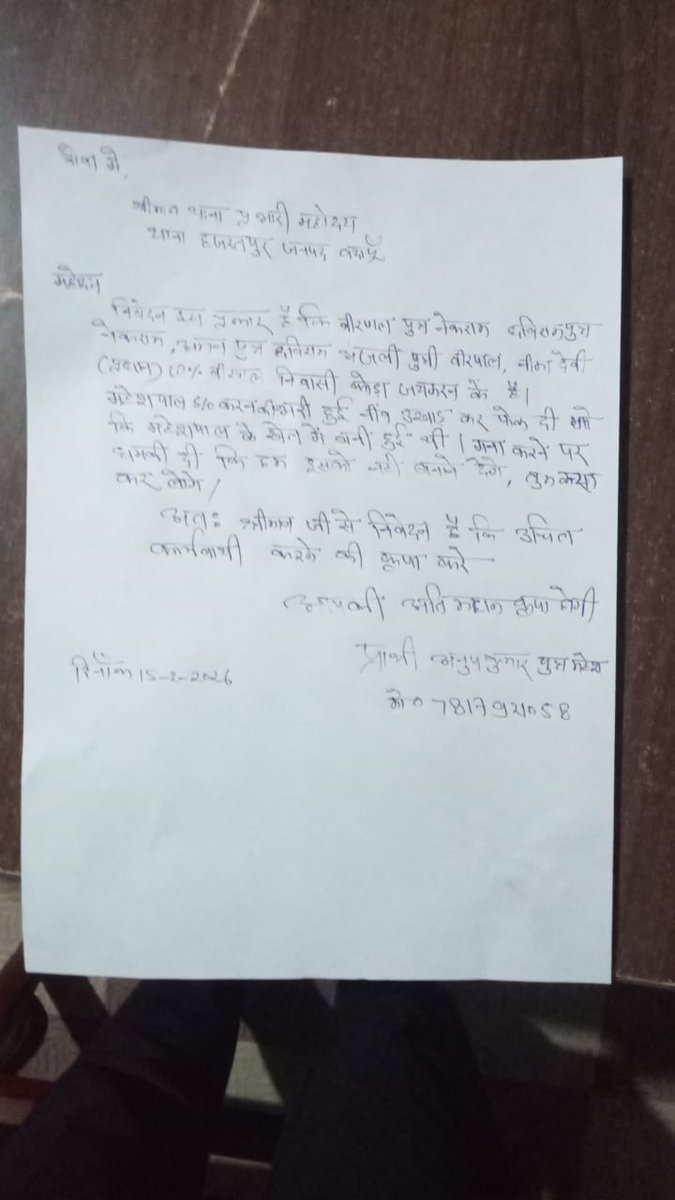 सेवा में,
श्रीमान थाना प्रभारी महोदय
थाना हजरतपुर जनपद बदायूँ
महोदय
निवेदन इस प्रकार है कि वीरपाल पुत्र नेकराम हरिराम पुत्र
नेकराम, अमन पुत्र हरिराम अंजली पुत्री वीरपाल, नीता देवी
(प्रधान) w/o वीरपाल निवासी जयमरन के है।
महेशपाल s/o करन की भरी हुई नींव उखाड़ कर फेंक दी जो
कि महेशपाल के खेत में बनी हुई थी। मना करने पर
धमकी दी कि हम इसको नहीं बनने देंगे, तुम क्या
कर लोगे।
अतः श्रीमान जी से निवेदन है कि उचित
कार्यवाही करने की कृपा करे
आपकी अति महान कृपा होगी
प्रार्थी अनुप कुमार पुत्र महेश
दिनाँक 15-2-2026
मो० 7817921058